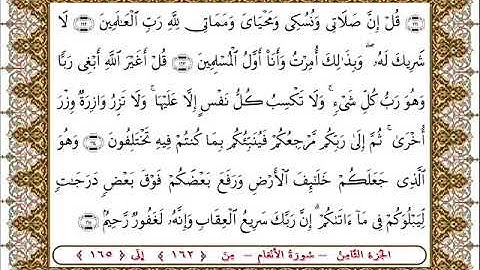 قُلْ إِنَّ صَلَاتِى وَنُسُكِى وَمَحْيَاىَ وَمَمَاتِى لِلَّهِ رَبِّ ٱلْعَـٰلَمِينَ ۝ لَا
شَرِيكَ لَهُۥ ۖ وَبِذَٰلِكَ أُمِرْتُ وَأَنَا۠ أَوَّلُ ٱلْمُسْلِمِينَ ۝ قُلْ أَغَيْرَ ٱللَّهِ أَبْغِى رَبًّا
وَهُوَ رَبُّ كُلِّ شَىْءٍ ۚ وَلَا تَكْسِبُ كُلُّ نَفْسٍ إِلَّا عَلَيْهَا ۚ وَلَا تَزِرُ وَازِرَةٌ وِزْرَ
أُخْرَىٰ ۚ ثُمَّ إِلَىٰ رَبِّكُم مَّرْجِعُكُمْ فَيُنَبِّئُكُم بِمَا كُنتُمْ فِيهِ تَخْتَلِفُونَ ۝ وَهُوَ
ٱلَّذِى جَعَلَكُمْ خَلَـٰٓئِفَ ٱلْأَرْضِ وَرَفَعَ بَعْضَكُمْ فَوْقَ بَعْضٍ دَرَجَـٰتٍ
لِّيَبْلُوَكُمْ فِى مَآ ءَاتَىٰكُمْ ۗ إِنَّ رَبَّكَ سَرِيعُ ٱلْعِقَابِ وَإِنَّهُۥ لَغَفُورٌ رَّحِيمٌ ۝
الجزء الثامن – سورة الأنعام – من ﴿١٦٢﴾ إلى ﴿١٦٥﴾